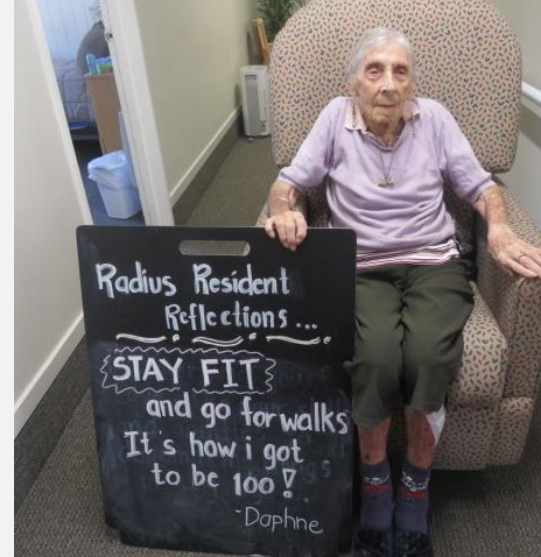 Radius Resident
Reflections...
STAY FIT
and go for walks
It's how i got
to be 100!
-Daphne